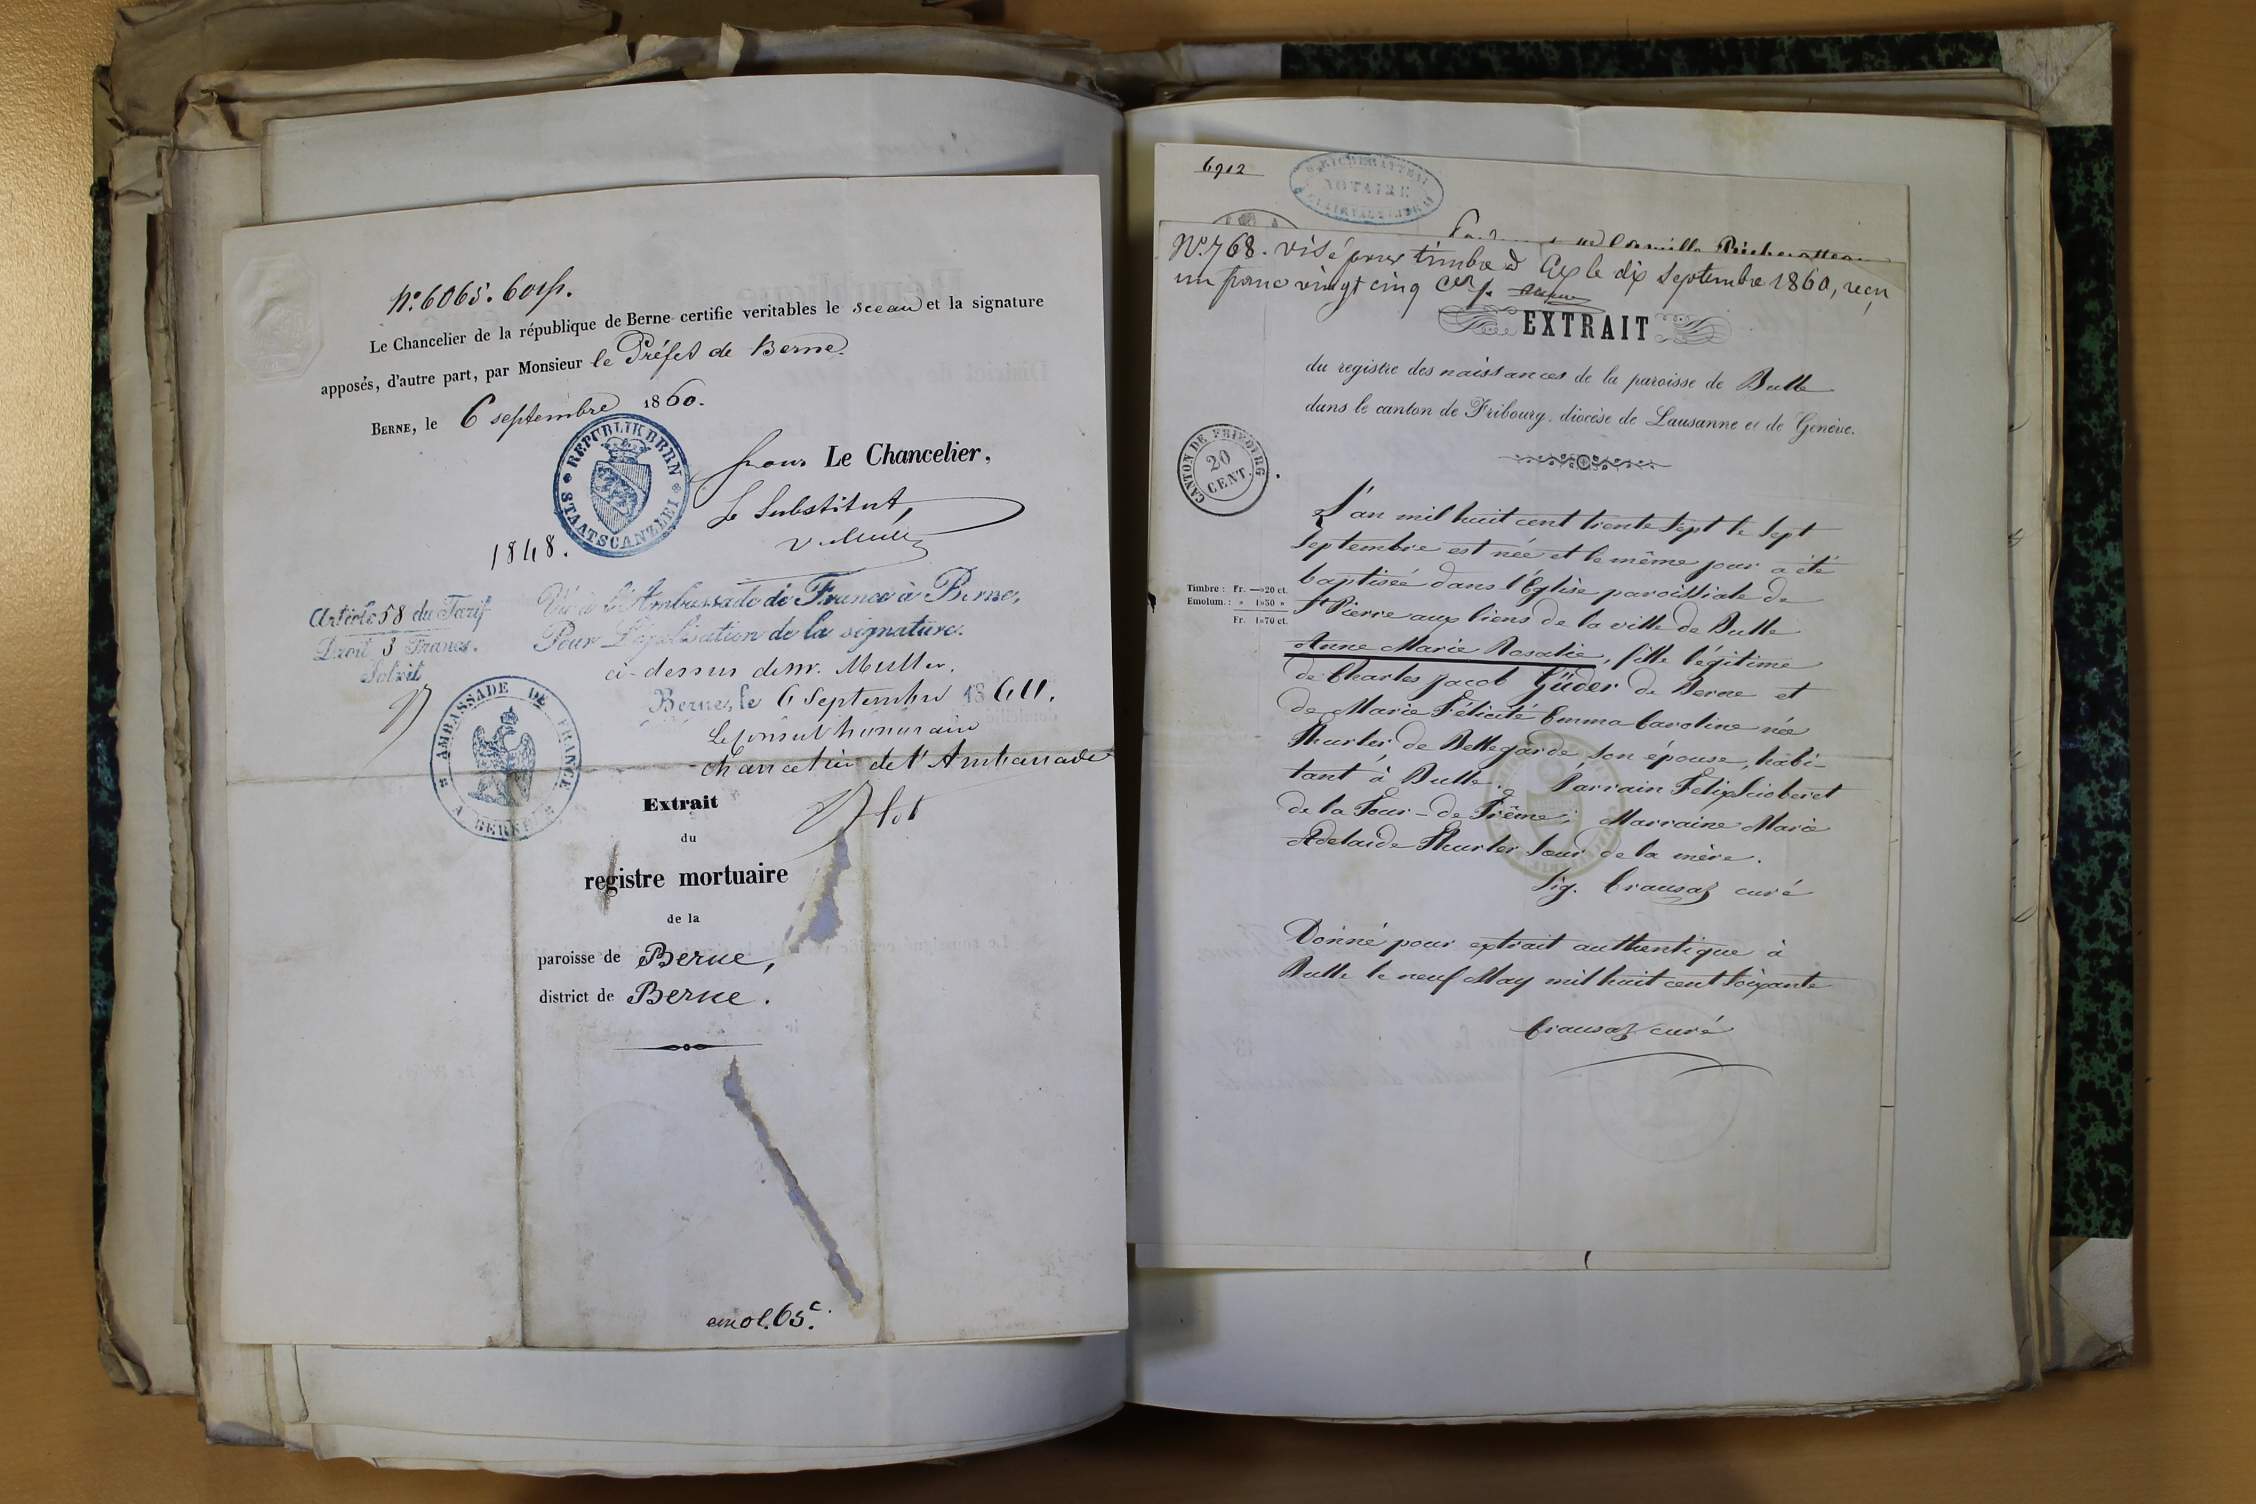 No. 6065. 60 rp.
Le Chancelier de la république de Berne certifie veritables le sceau et la signature
apposés, d'autre part, par Monsieur le Préfet de Berne.
BERNE, le 6 septembre 1860.
REPUBLIK BERN
STAATSCANZLEI
pour Le Chancelier,
Le Substitut,
1848.
Article 58 du Tarif
Droit 3 Francs.
Vu à l'Ambassade de France à Berne,
Pour Légalisation de la signature
ci-dessus de Mr. Muller.
Berne, le 6 Septembre 1860.
Le Consul honoraire
Chancelier de l'Ambassade
AMBASSADE DE FRANCE
A BERNE
Extrait
du
registre mortuaire
de la
paroisse de Berne,
district de Berne.
emol. 65 c.
6912
NOTAIRE
No. 768. visé pour timbre à Gex le dix Septembre 1860, reçu
un franc vingt cinq ces
EXTRAIT
du registre des naissances de la paroisse de Bulle
dans le canton de Fribourg, diocèse de Lausanne et de Genève.
CANTON DE FRIBOURG
20
CENT.
L'an mil huit cent trente sept le sept
Septembre est née et le même jour a été
baptisée dans l'Eglise paroissiale de
St Pierre aux liens de la ville de Bulle
Anne Marie Rosalie, fille légitime
de Charles Jacob Güder de Berne et
de Marie Félicité Emma Caroline née
Thurler de Bellegarde son épouse, habi-
tant à Bulle. Parrain Felix Sciobéret
de la Tour-de-Trême; Marraine Marie
Adelaide Thurler soeur de la mère.
Sig. Crausaz curé
Timbre : Fr. —»20 ct.
Emolum. : » 1»50 »
Fr. 1»70 ct.
Donné pour extrait authentique à
Bulle le neuf May mil huit cent soixante
Crausaz curé